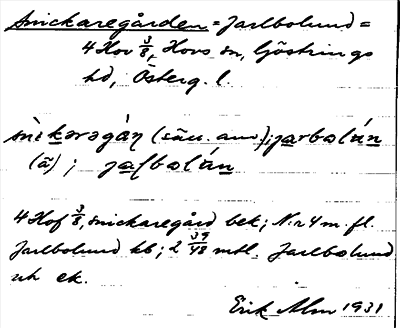 Snickaregården = Jarlbolund =
4 Hov 3/8, Hovs sn, Göstrings
hd, Österg. l.
snìkarəgån (sån. anv.); jarbolún
(ã); jaſbolún
4 Hof 3/8, snickaregård bek; N:r 4 m. fl.
Jarlbolund kb; 2 39/48 mtl. Jarlbolund
uh ek.
Erik Alm 1931